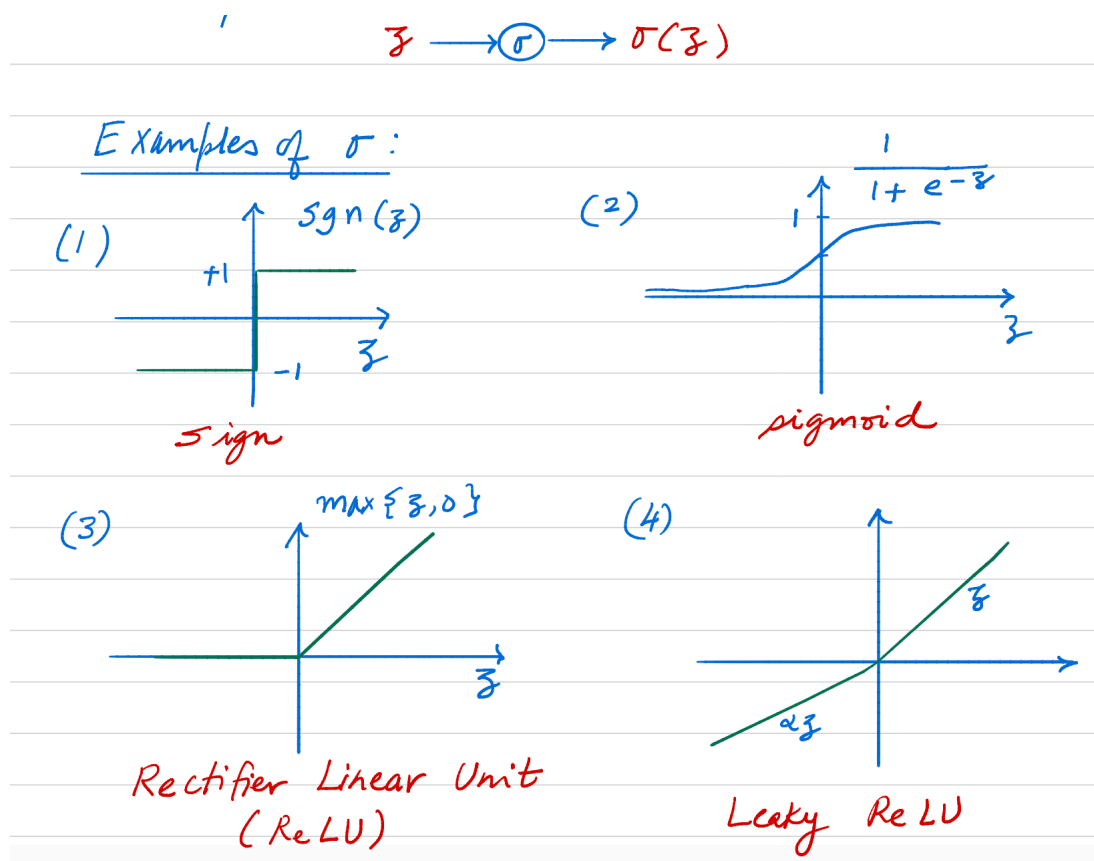 z → σ → σ(z)
Examples of σ:
(1)
sgn(z)
+1
-1
z
sign
(2)
1
1 + e-z
1
z
sigmoid
(3)
max{z,0}
z
Rectifier Linear Unit
(ReLU)
(4)
z
αz
Leaky ReLU